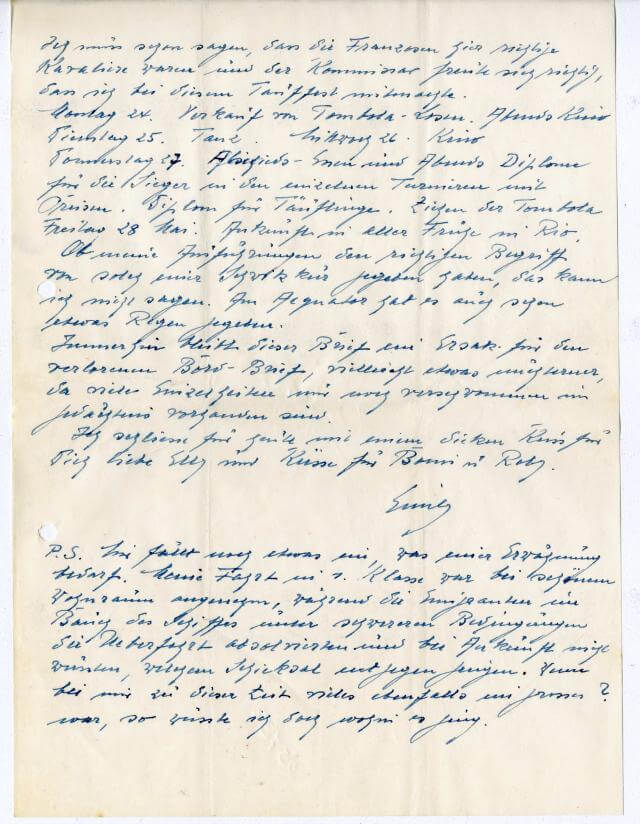 Ich muss schon sagen, dass die Franzosen hier richtige
Kavaliere waren und der Kommissar freute sich richtig,
dass ich bei diesem Tauffest mitmachte.
Montag 24. Verkauf von Tombola-Losen. Abends Kino
Dienstag 25. Tanz. Mittwoch 26. Kino
Donnerstag 27. Abschieds-Essen und Abends Diplome
für die Sieger in den einzelnen Turnieren mit
Preisen. Diplom für Täuflinge. Ziehen der Tombola
Freitag 28 Mai. Ankunft in aller Frühe in Rio.
Ob meine Ausführungen den richtigen Begriff
von solch einer gegeben haben, das kann
ich nicht sagen. Am Aequator hat es auch schon
etwas Regen gegeben.
Immerhin bleibt dieser Brief ein Ersatz für den
verlorenen Bord-Brief, vielleicht etwas nüchterner,
da viele Einzelheiten nur noch verschwommen im
Gedächtnis vorhanden sind.
Ich schliesse für heute mit einem dicken Kuss für
Dich liebe Elly und Küsse für und
P.S. Mir fällt noch etwas ein, was einer Erwägung
bedarf. Meine Fahrt in 1. Klasse war bei schönem
Wohnraum angenehm, während die Emigranten im
Bauch des Schiffes unter schweren Bedingungen
die Ueberfahrt absolvierten und bei Ankunft nicht
wussten, welchem Schicksal entgegen gingen. Wenn
bei mir zu dieser Zeit vieles ebenfalls ein grosses ?
war, so wusste ich doch wohin es ging.